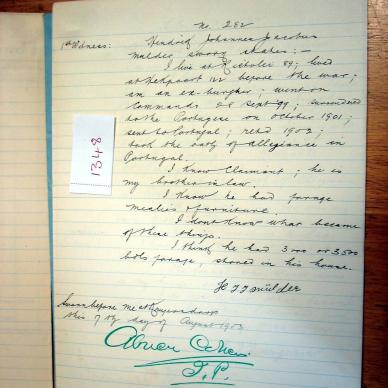 No. 282
1st Witness: Hendrik Johannes Jacobus
Mulder sworn states:—
I live at 89; lived
at 112 before the war;
am an ex-burgher; went on
Commando 28 Sept 99; surrendered
to the Portugese on October 1901;
sent to Portugal; retd 1902;
took the oath of allegiance in
Portugal.
I know Claimant; he is
my brother in law.
I know he had forage
mealies & furniture.
I dont know what became
of these things.
I think he had 3000 or 3,500
bdls forage stored in his house.
H J J Mulder
Sworn before me at
this 7th day of August 1903
Abner Cohen
J.P.
1348